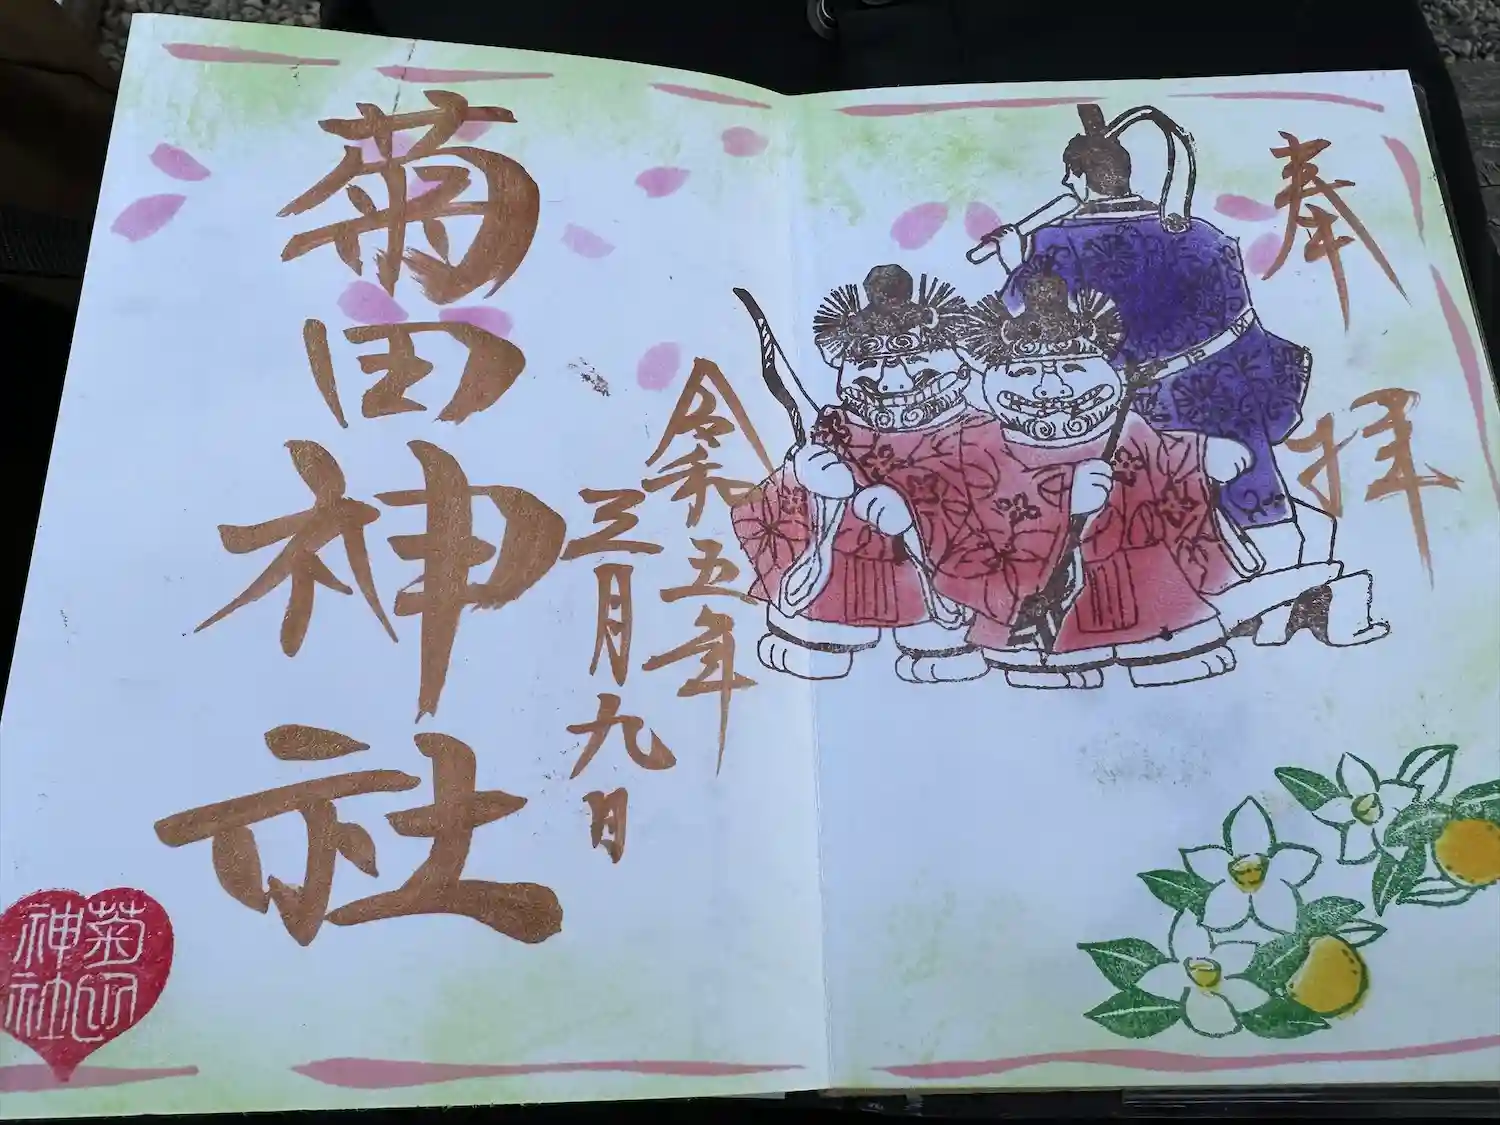 奉拝
令和五年
三月九日
菊田神社
菊
神社